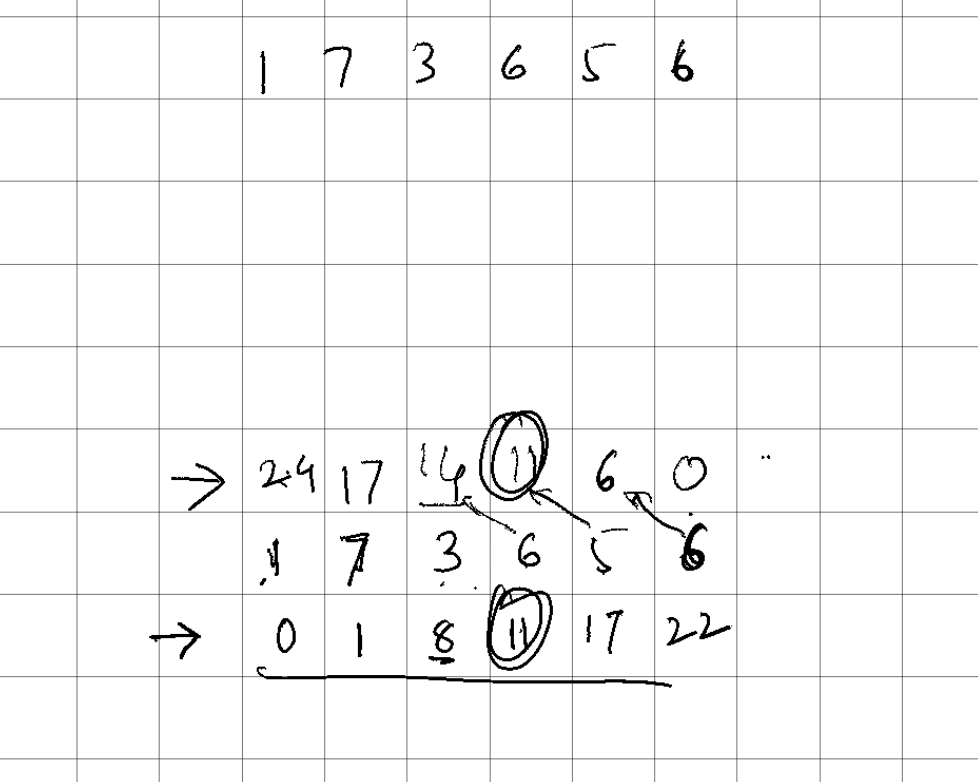 1 7 3 6 5 6
→ 24 17 14 11 6 0
1 7 3 6 5 6
→ 0 1 8 11 17 22